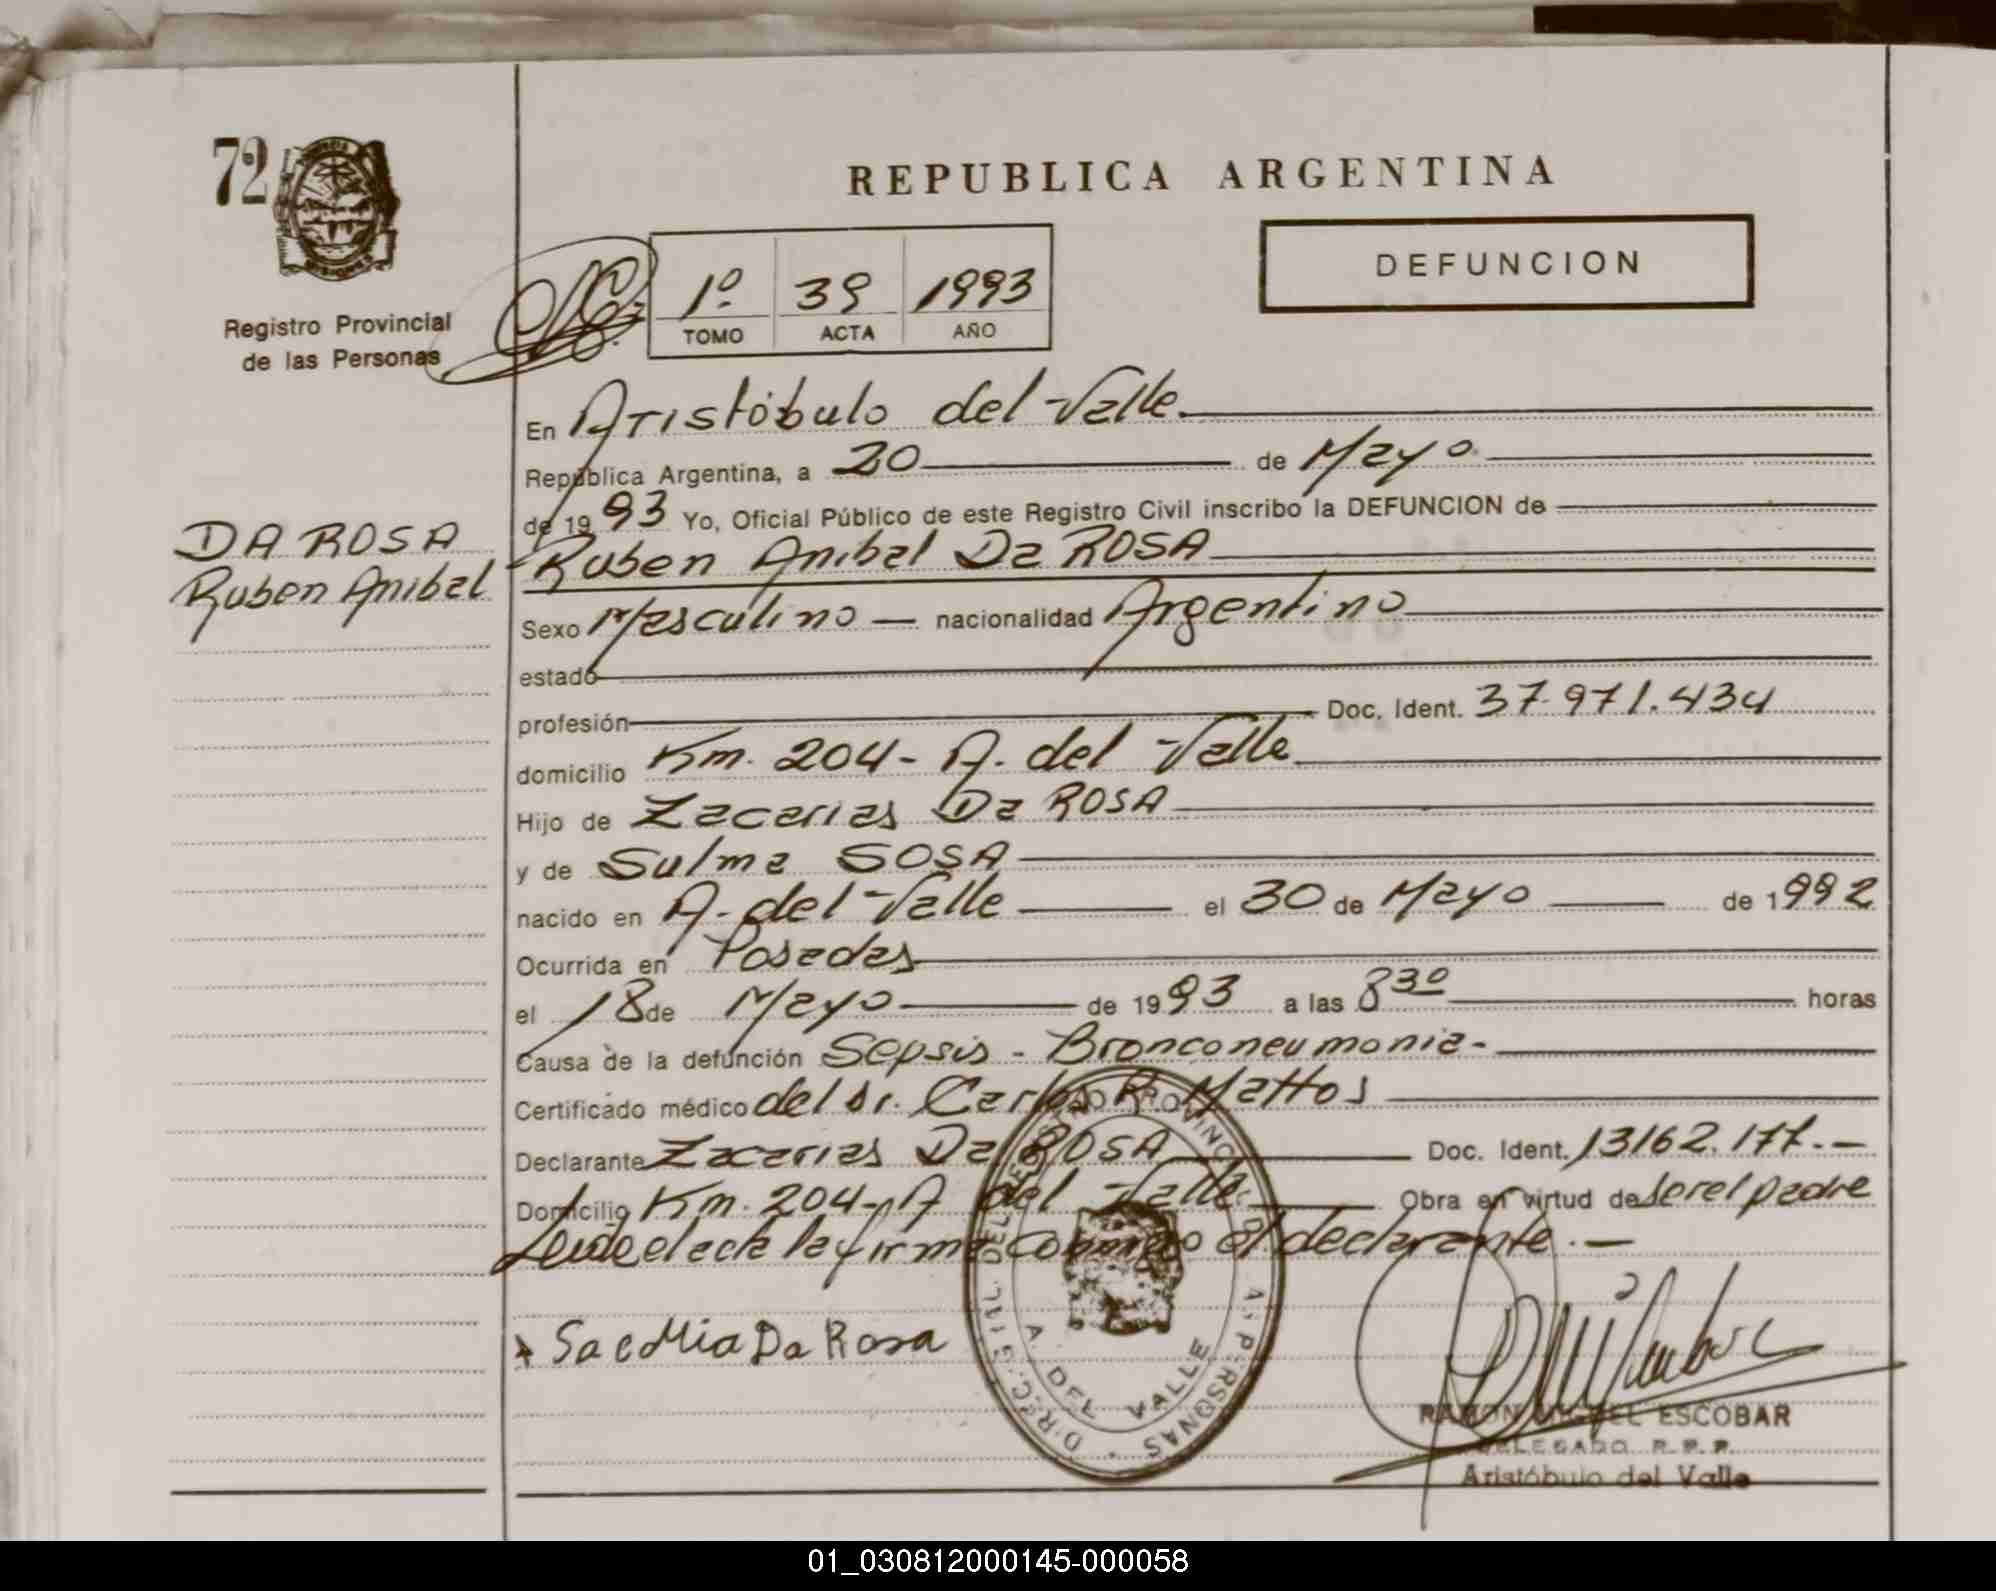 72
REPUBLICA ARGENTINA
DEFUNCION
Registro Provincial
de las Personas
1º 39 1993
TOMO ACTA AÑO
En Aristóbulo del Valle
República Argentina, a 20 de Mayo
de 1993 Yo, Oficial Público de este Registro Civil inscribo la DEFUNCION de
DA ROSA
Ruben Anibal
Ruben Anibal Da ROSA
Sexo Masculino — nacionalidad Argentino
estado
profesión Doc. Ident. 37.971.434
domicilio Km. 204 - A. del Valle
Hijo de Zacarias Da ROSA
y de Sulma SOSA
nacido en A. del Valle el 30 de Mayo de 1992
Ocurrida en Posadas
el 18 de Mayo de 1993 a las 8 30 horas
Causa de la defunción Sepsis - Bronconeumonia -
Certificado médico del dr. Carlos R. Mattos
Declarante Zacarias Da ROSA Doc. Ident. 13162.177.-
Domicilio Km. 204 - A del Valle Obra en virtud de ser el padre
Leida el acta la firma conmigo el declarante.-
Da Rosa
A. DEL VALLE
RAMON MIGUEL ESCOBAR
DELEGADO R.P.P.
Aristóbulo del Valle
01_030812000145-000058